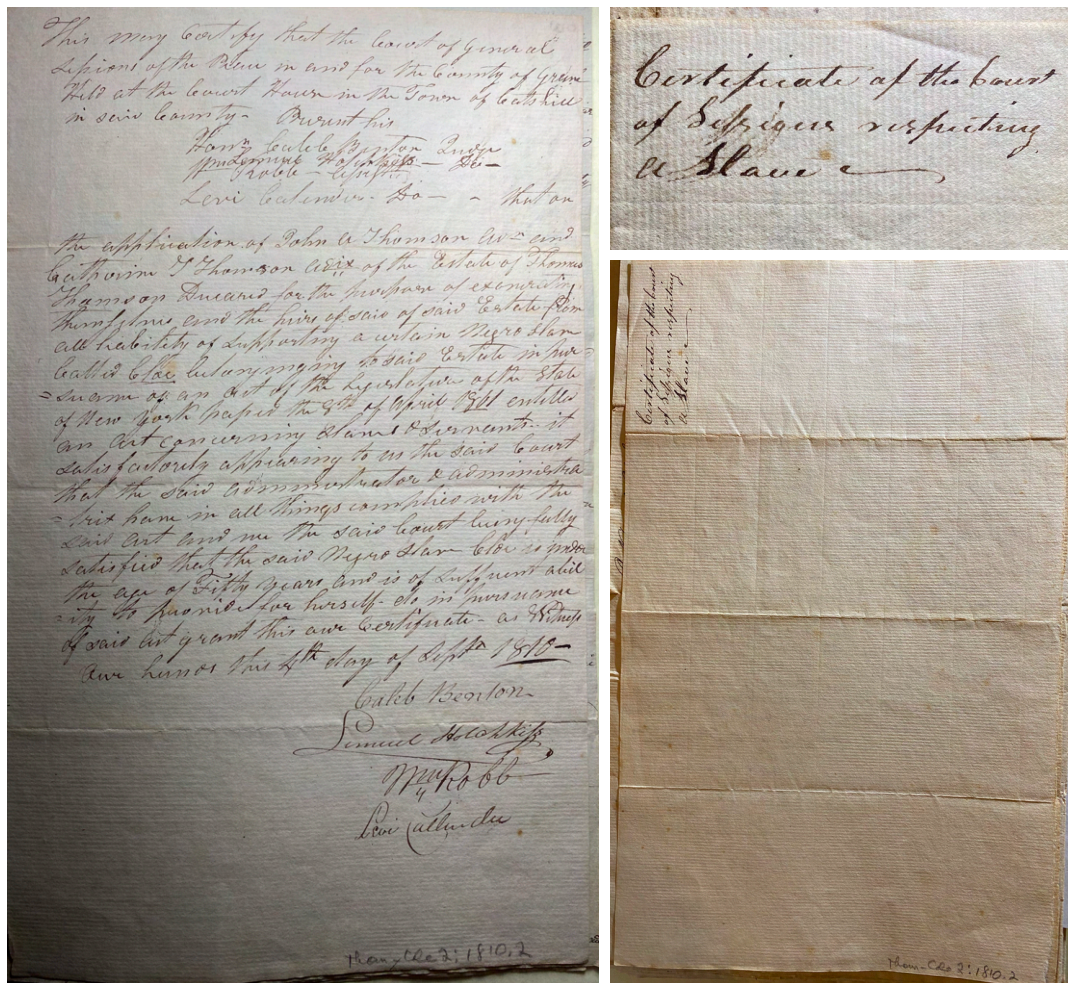 This may Certify that the Court of General
Sessions of the Peace in and for the County of Greene
Held at the Court House in the Town of Catskill
in said County - Present his
Honr. Caleb Benton Judge
Lemuel Hotchkiss - Do -
Wm Robb -
Levi Calender - Do - - that on
the application of John A Thomson and
Catherine T Thomson adix of the Estate of Thomas
Thomson Deceased for the purpose of exonerating
themselves and the heirs of said of said Estate from
all liability of supporting a certain Negro Slave
Called Cloe belonging to said Estate in pur-
=suance of an act of the Legislature of the State
of New York passed the 8th of April 1801 entitled
an Act concerning Slaves & servants - it
satisfactorily appearing to us the said Court
that the said administrator & administra
=trix have in all things complied with the
said act and we the said Court being fully
satisfied that the said Negro Slave Cloe is under
the age of Fifty years and is of sufficient abil
-ity to provide for herself - do in pursuance
of said Act grant this our Certificate - as Witness
Our hands this 4th day of Sept 1810 -
Caleb Benton
Lemuel Hotchkiss
Wm Robb
Levi Callender
Thom-Cloe 2: 1810.2
Certificate of the Court
of Sessions respecting
a Slave
Certificate of the Court
of Sessions respecting
a Slave
Thom-Cloe 2: 1810.2